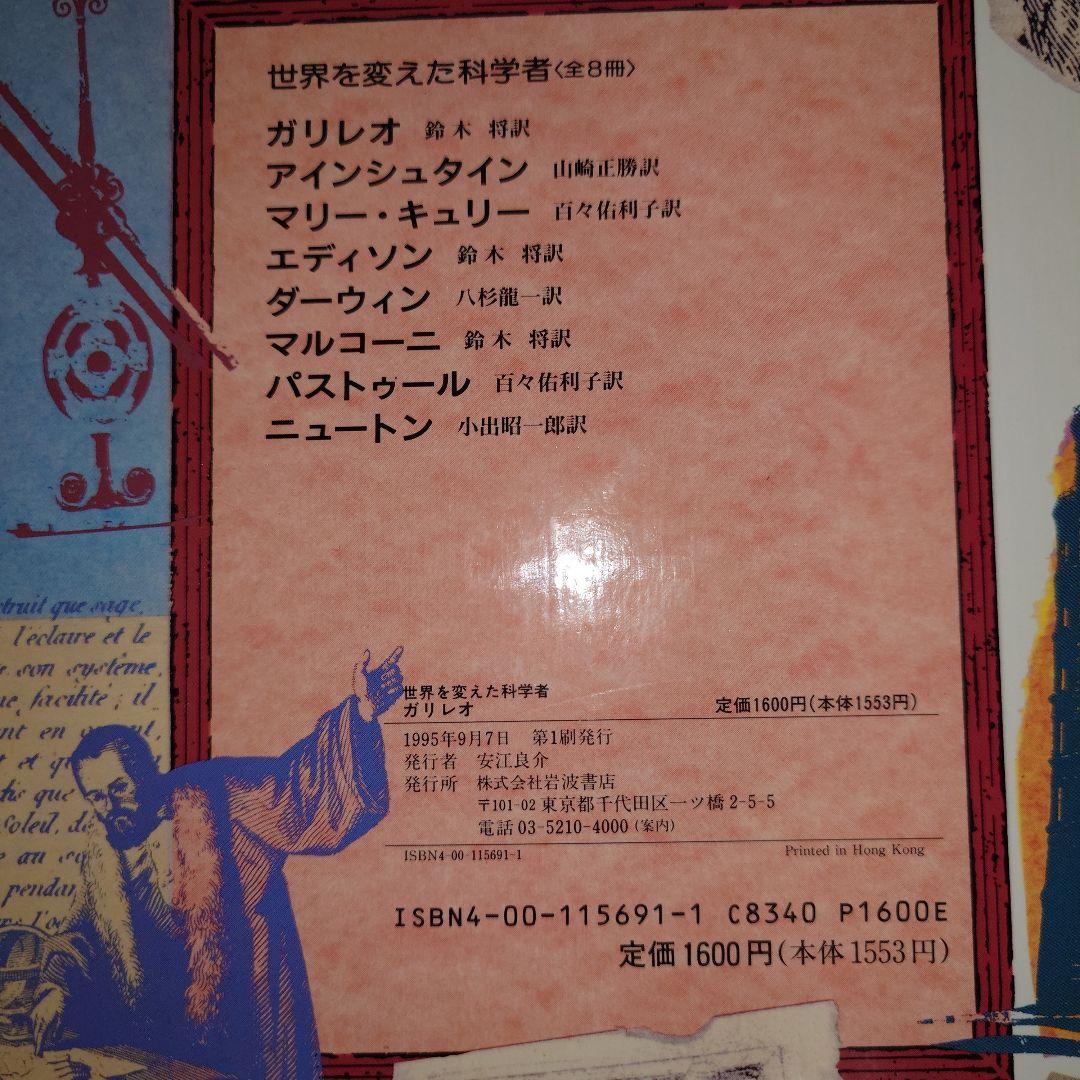 世界を変えた科学者〈全8冊〉
ガリレオ 鈴木 将訳
アインシュタイン 山崎正勝訳
マリー・キュリー 百々佑利子訳
エディソン 鈴木 将訳
ダーウィン 八杉龍一訳
マルコーニ 鈴木 将訳
パストゥール 百々佑利子訳
ニュートン 小出昭一郎訳
世界を変えた科学者
ガリレオ
定価1600円(本体1553円)
1995年9月7日 第1刷発行
発行者 安江良介
発行所 株式会社岩波書店
〒101-02 東京都千代田区一ツ橋2-5-5
電話 03-5210-4000(案内)
ISBN4-00-115691-1
Printed in Hong Kong
ISBN4-00-115691-1 C8340 P1600E
定価1600円(本体1553円)
que sage,
l'éclaire et le
son système,
facilité; il
en
et
que
Soleil, de
au